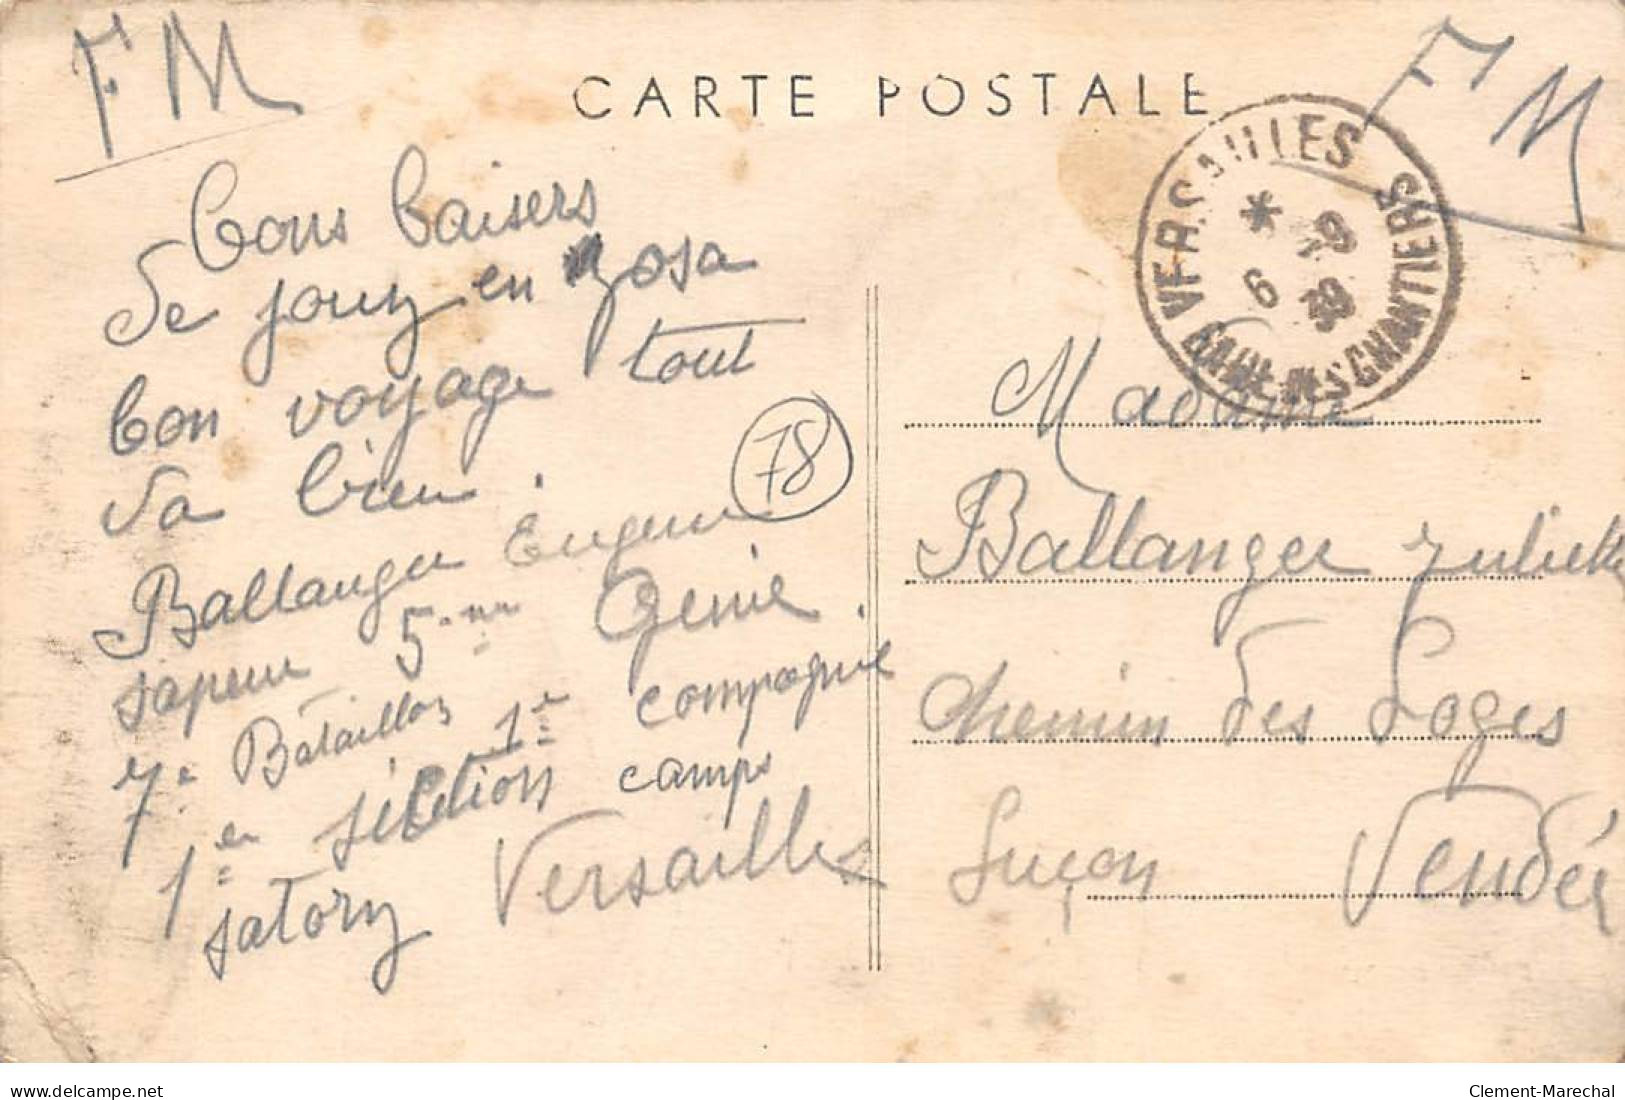 FM
FM
CARTE POSTALE
VERSAILLES
* -9
6 39
GARE DES CHANTIERS
bons baisers
de jouy en josa
bon voyage tout
va bien.
Ballanger Eugene
sapeur 5.me Genie.
7e Bataillon
1er compagnie
1er section camps
satory Versailles
78
Madame
Ballanger Juliette
chemin des Loges
Luçon Vendée
delcampe.net
Clement-Marechal